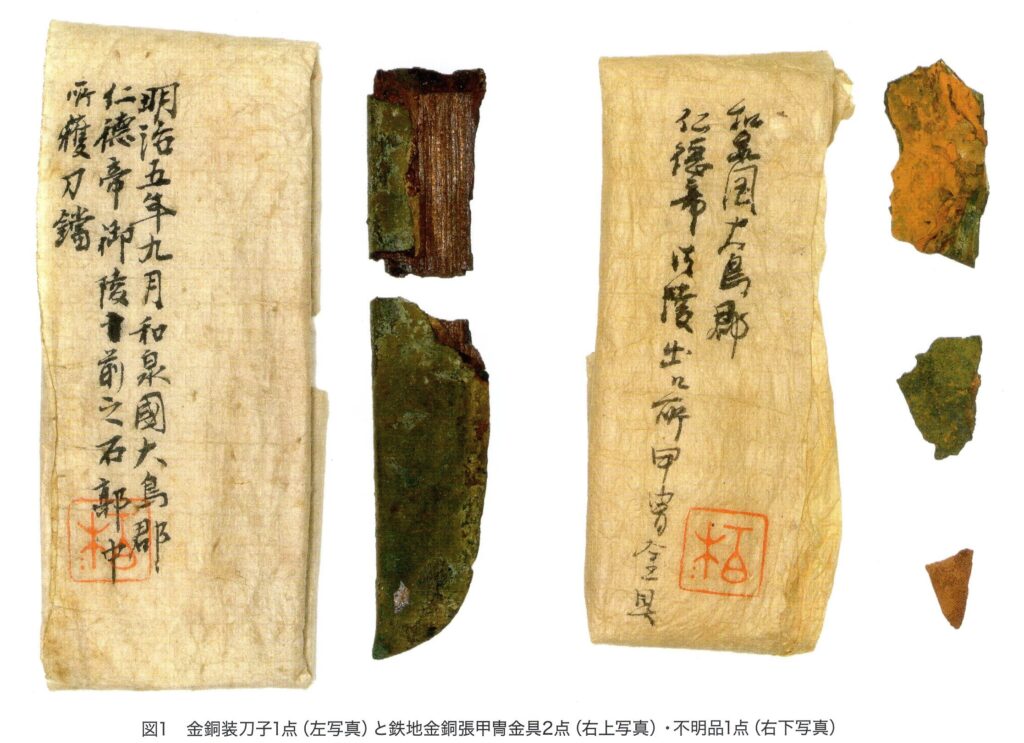 明治五年九月和泉國大鳥郡
仁徳帝御陵前之石郭中
所獲刀鐺
栢
和泉国大鳥郡
仁徳帝御陵出ル所甲冑金具
栢
図1 金銅装刀子1点（左写真）と鉄地金銅張甲冑金具2点（右上写真）・不明品1点（右下写真）